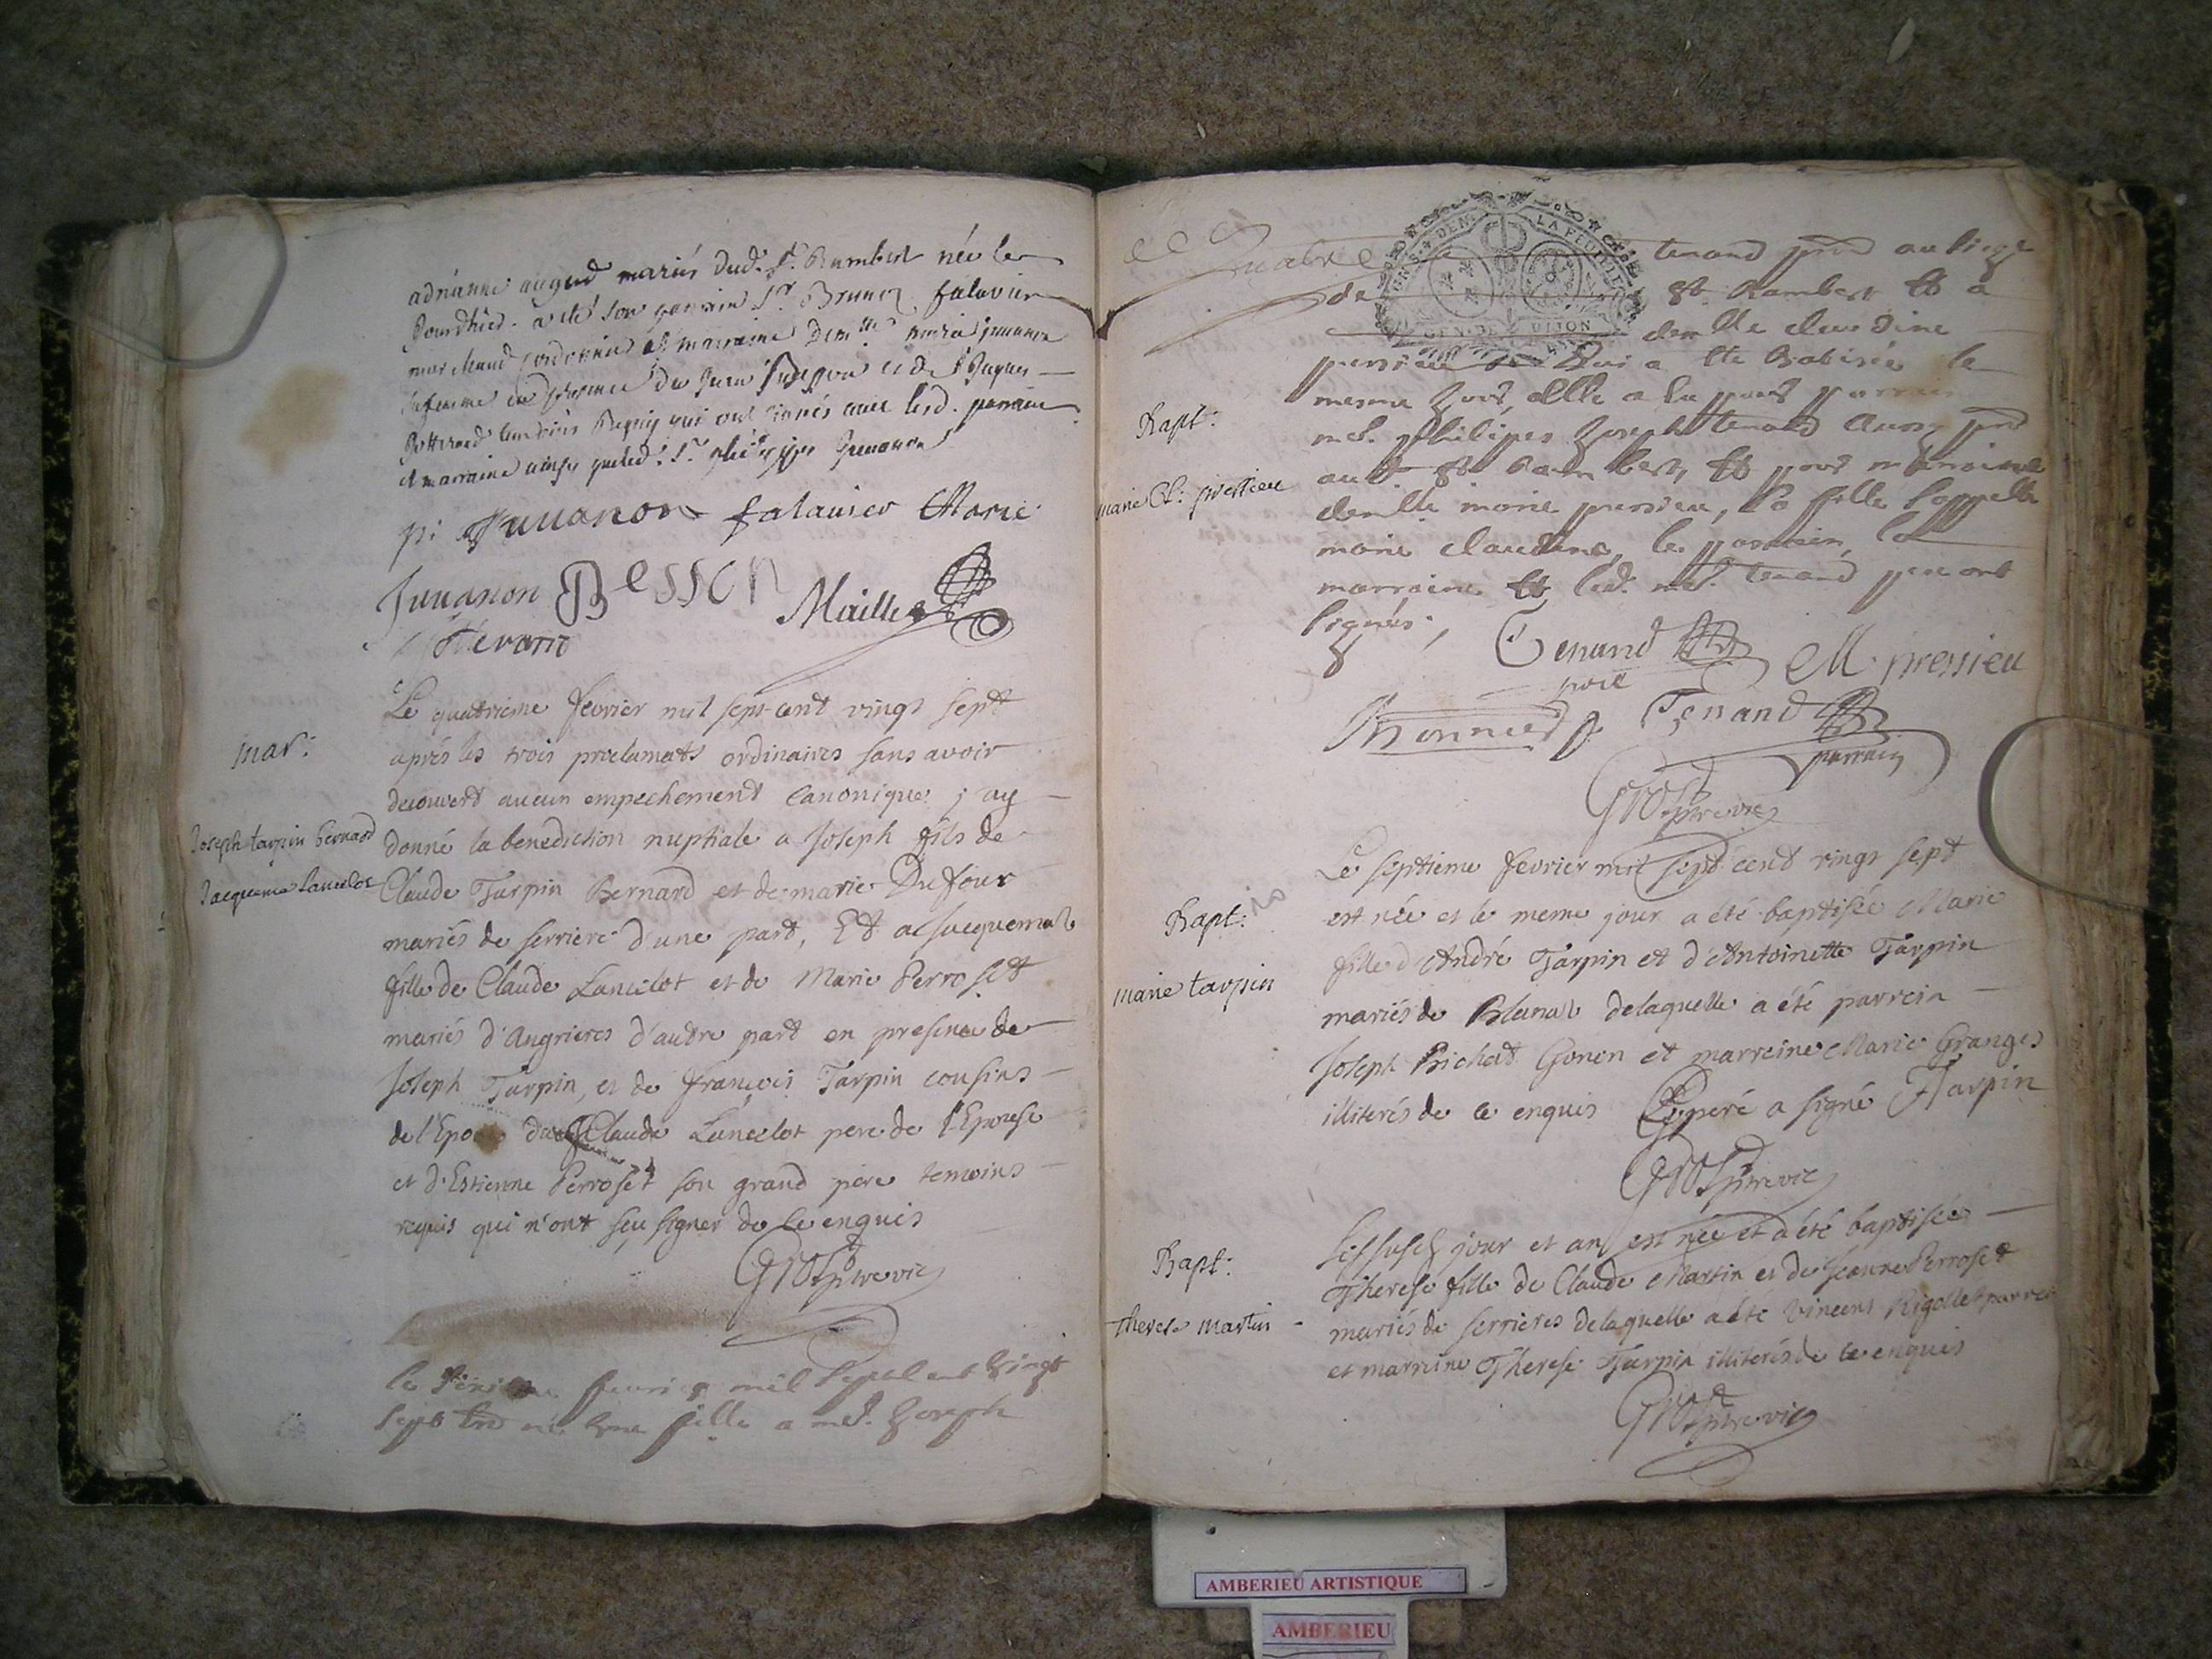 mariés dud. St. Rambert née le
pourdhier. a eté son parrain Sr. Brunez falavier
marchand cordonnier et marraine Demlle. maria juuanon
sa femme en presence de
qui ont signés avec lesd. parrain
et marraine ainsy que led. Sr. juuanon
pi Juuanon falavier Marie
Juuanon Besson Maillet
mar:
Joseph tarpin bernard
Jacquema Lancelot
Le quatrieme fevrier mil sept cent vingt sept
après les trois proclamats ordinaires sans avoir
decouvert aucun empechement canonique j ay
donné la benediction nuptiale a Joseph fils de
Claude Tarpin Bernard et de marie Dufour
mariés de serriere d'une part, Et a Jacquema
fille de Claude Lancelot et de Marie Perroset
mariés d'Angrieres d'autre part en presence de
Joseph Tarpin, et de françois Tarpin cousins
de l'Epo Claude Lancelot pere de l'Epouse
et d'Estienne Perroset son grand pere temoins
requis qui n'ont sçu signer de ce enquis
le fevrier mil sept cent vingt
sept est né une fille a me. Joseph
tenand au siege
de St Rambert et a
delle claudine
pressieu qui a ete batisée le
mesme jour, elle a eu pour parrain
me. philipes Joseph tenand aussy
aud. St Rambert, et pour marraine
delle marie pressieu, la fille s'appelle
marie claudine, le parrain, la
marraine et led. me. tenand pere ont
signés.
Bapt:
marie Cl: pressieu
Tenand M. pressieu
pere
Monnier Tenand
parrain
Grosptre vic
Bapt:
marie tarpin
Le septieme fevrier mil sept cent vingt sept
est née et le meme jour a été baptisée Marie
fille d'André Tarpin et d'Antoinette Tarpin
mariés de Blanaz delaquelle a été parrein
Joseph Brichat Gonon et marreine Marie Granges
illiterés de ce enquis Le peré a signé Tarpin
Grosptre vic
Bapt:
therese martin
Les susd jour et an est née et a été baptisée
Therese fille de Claude Martin et de Jeanne Perroset
mariés de serrieres delaquelle a été Vincent Rigollet parrei
et marreine Therese Tarpin illiterés de ce enquis
Grosptre vic
AMBERIEU ARTISTIQUE
AMBERIEU